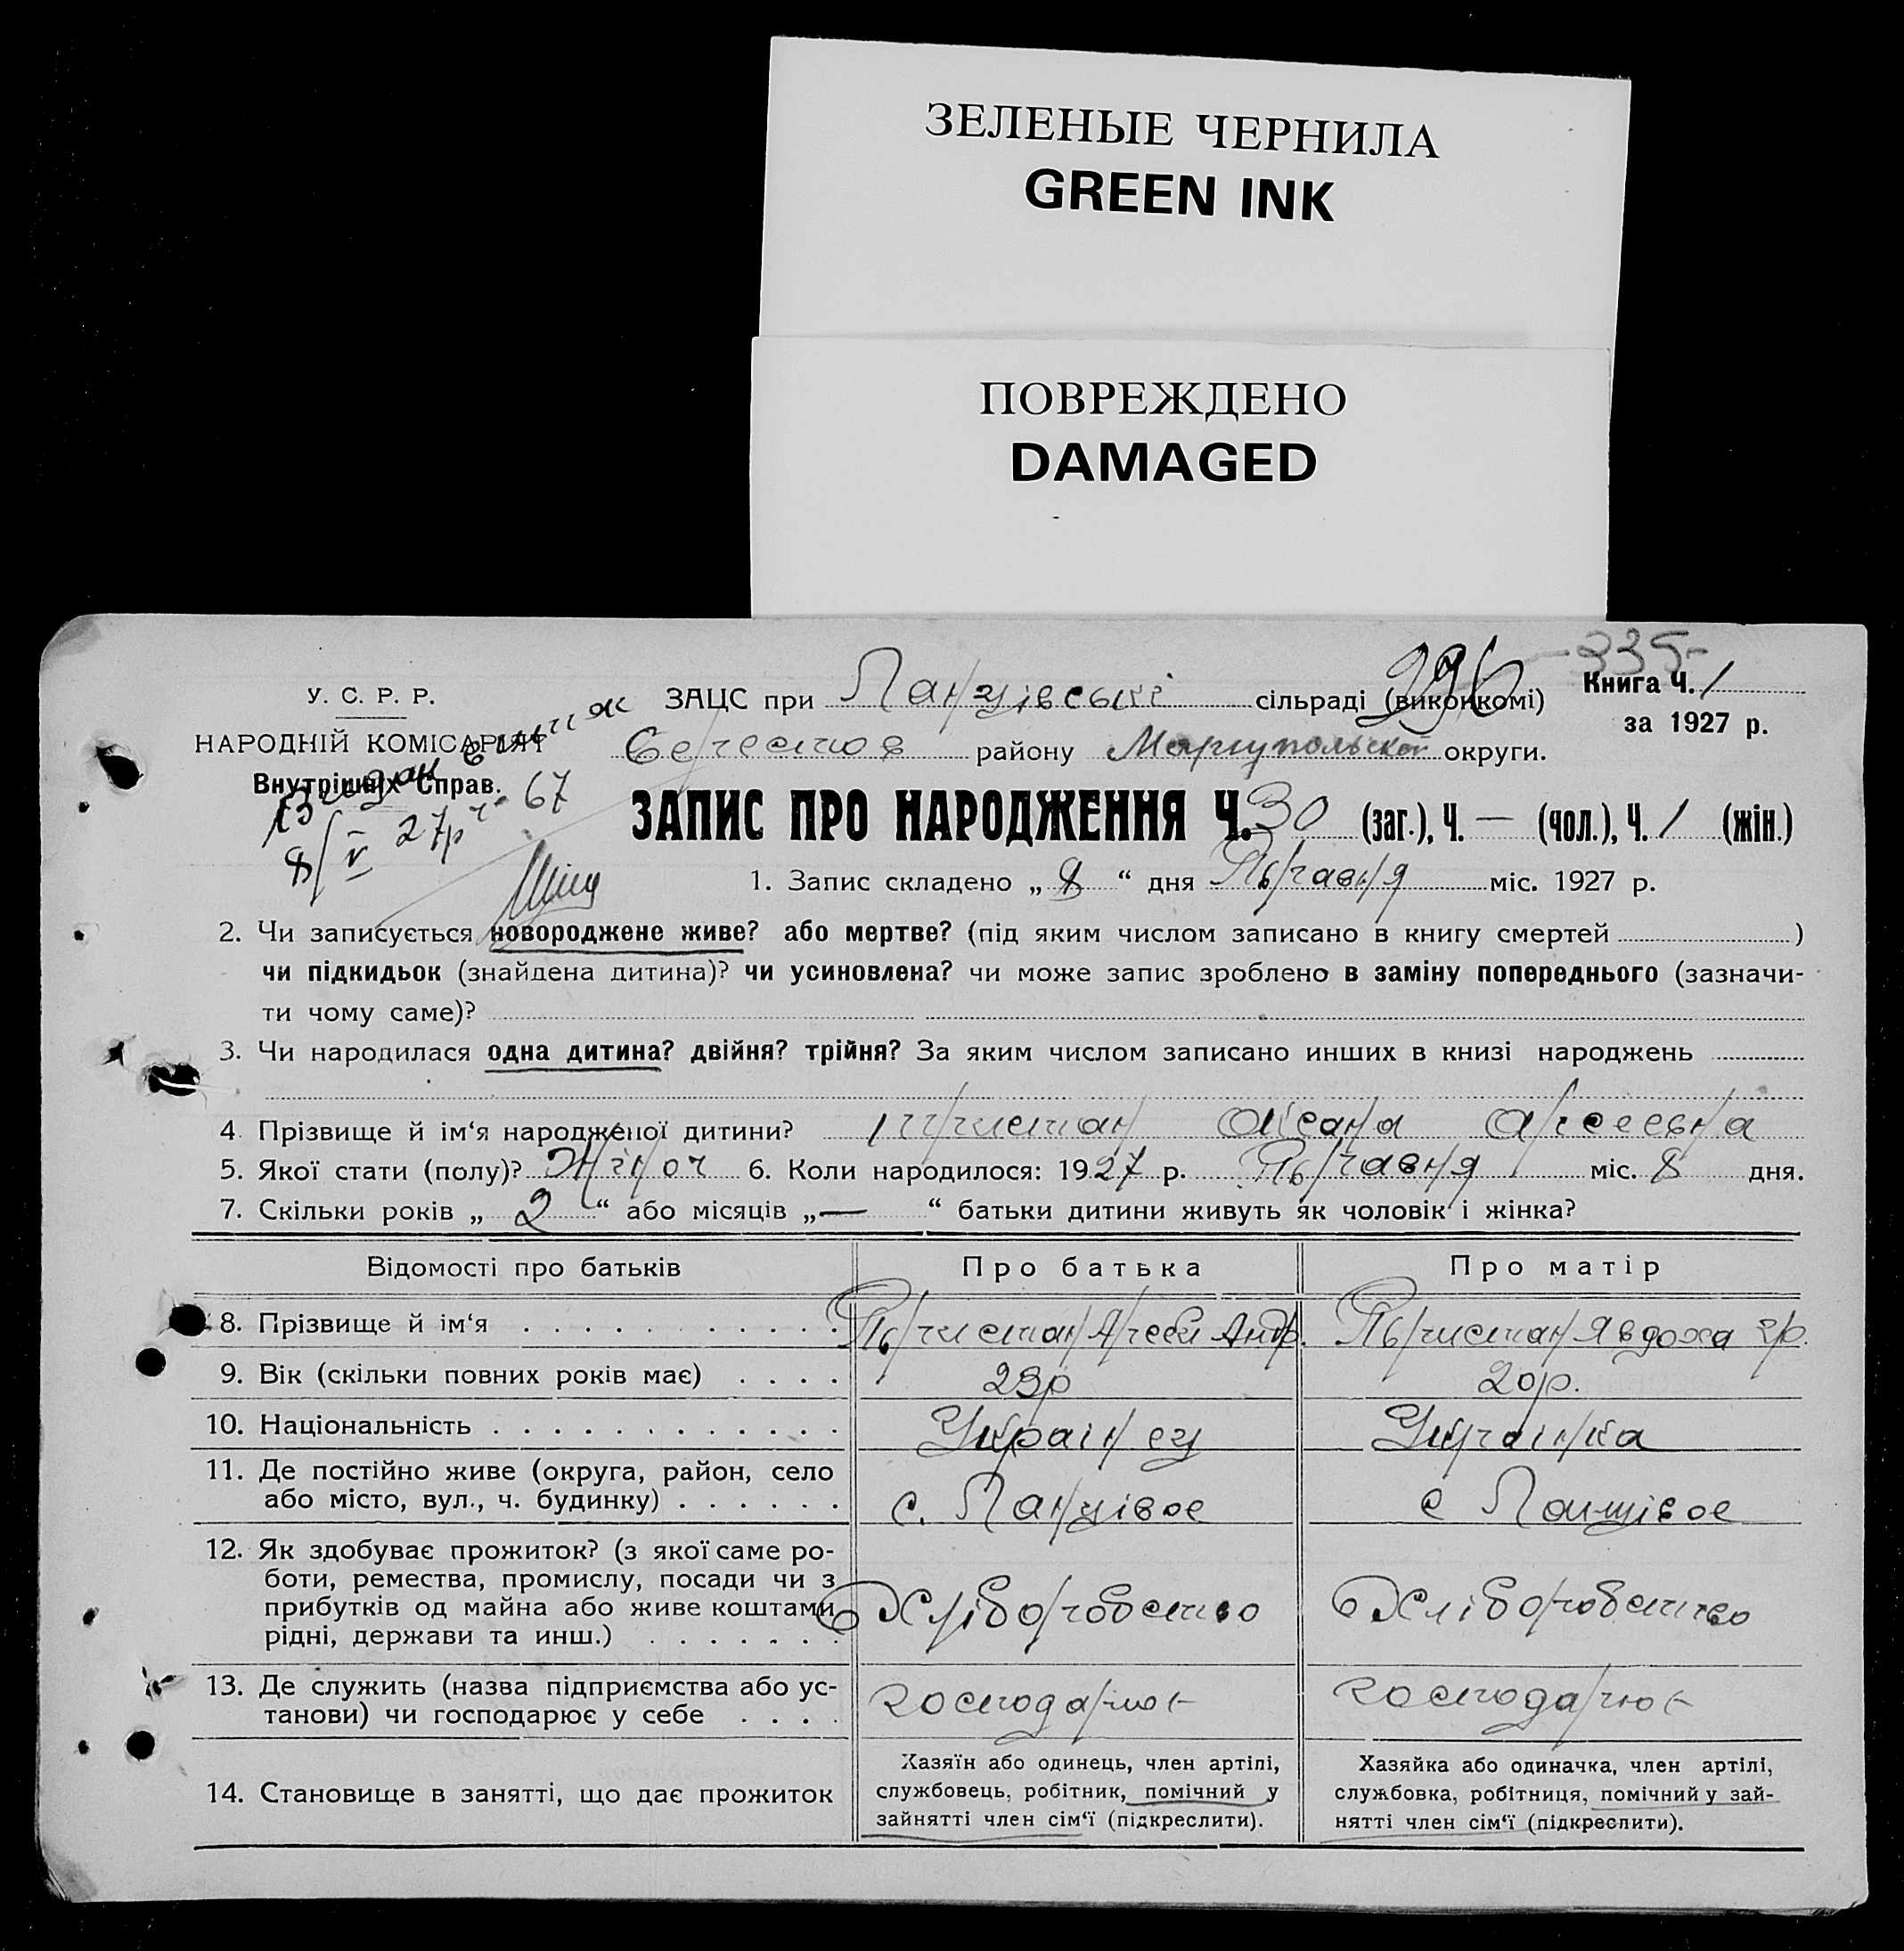 ЗЕЛЕНЫЕ ЧЕРНИЛА
GREEN INK
ПОВРЕЖДЕНО
DAMAGED
335
296
У. С. Р. Р.
НАРОДНІЙ КОМІСАРІЯТ
Внутрішніх Справ.
8/V 27р ч. 67
ЗАЦС при сільраді (виконкомі)
району Мариупольской округи.
Книга Ч. 1
за 1927 р.
ЗАПИС ПРО НАРОДЖЕННЯ Ч. 30 (заг.), Ч. — (чол.), Ч. 1 (жін.)
1. Запис складено „ 8 “ дня міс. 1927 р.
2. Чи записується новороджене живе? або мертве? (під яким числом записано в книгу смертей )
чи підкидьок (знайдена дитина)? чи усиновлена? чи може запис зроблено в заміну попереднього (зазначи-
ти чому саме)?
3. Чи народилася одна дитина? двійня? трійня? За яким числом записано инших в книзі народжень
4. Прізвище й ім‘я народженої дитини? Оксана
5. Якої стати (полу)? Жіноч 6. Коли народилося: 1927 р. міс. 8 дня.
7. Скільки років „ 2 “ або місяців „ — “ батьки дитини живуть як чоловік і жінка?
Відомості про батьків Про батька Про матір
8. Прізвище й ім‘я Андр. Явдоха
9. Вік (скільки повних років має) 23р 20р.
10. Національність Українец Українка
11. Де постійно живе (округа, район, село
або місто, вул., ч. будинку) с. Ланцівое с Ланцівое
12. Як здобуває прожиток? (з якої саме ро-
боти, ремества, промислу, посади чи з
прибутків од майна або живе коштами
рідні, держави та инш.) Хліборобство Хліборобство
13. Де служить (назва підприємства або ус-
танови) чи господарює у себе господарює господарює
14. Становище в занятті, що дає прожиток
Хазяїн або одинець, член артілі,
службовець, робітник, помічний у
зайнятті член сім‘ї (підкреслити).
Хазяйка або одиначка, член артілі,
службовка, робітниця, помічний у зай-
нятті член сім‘ї (підкреслити).